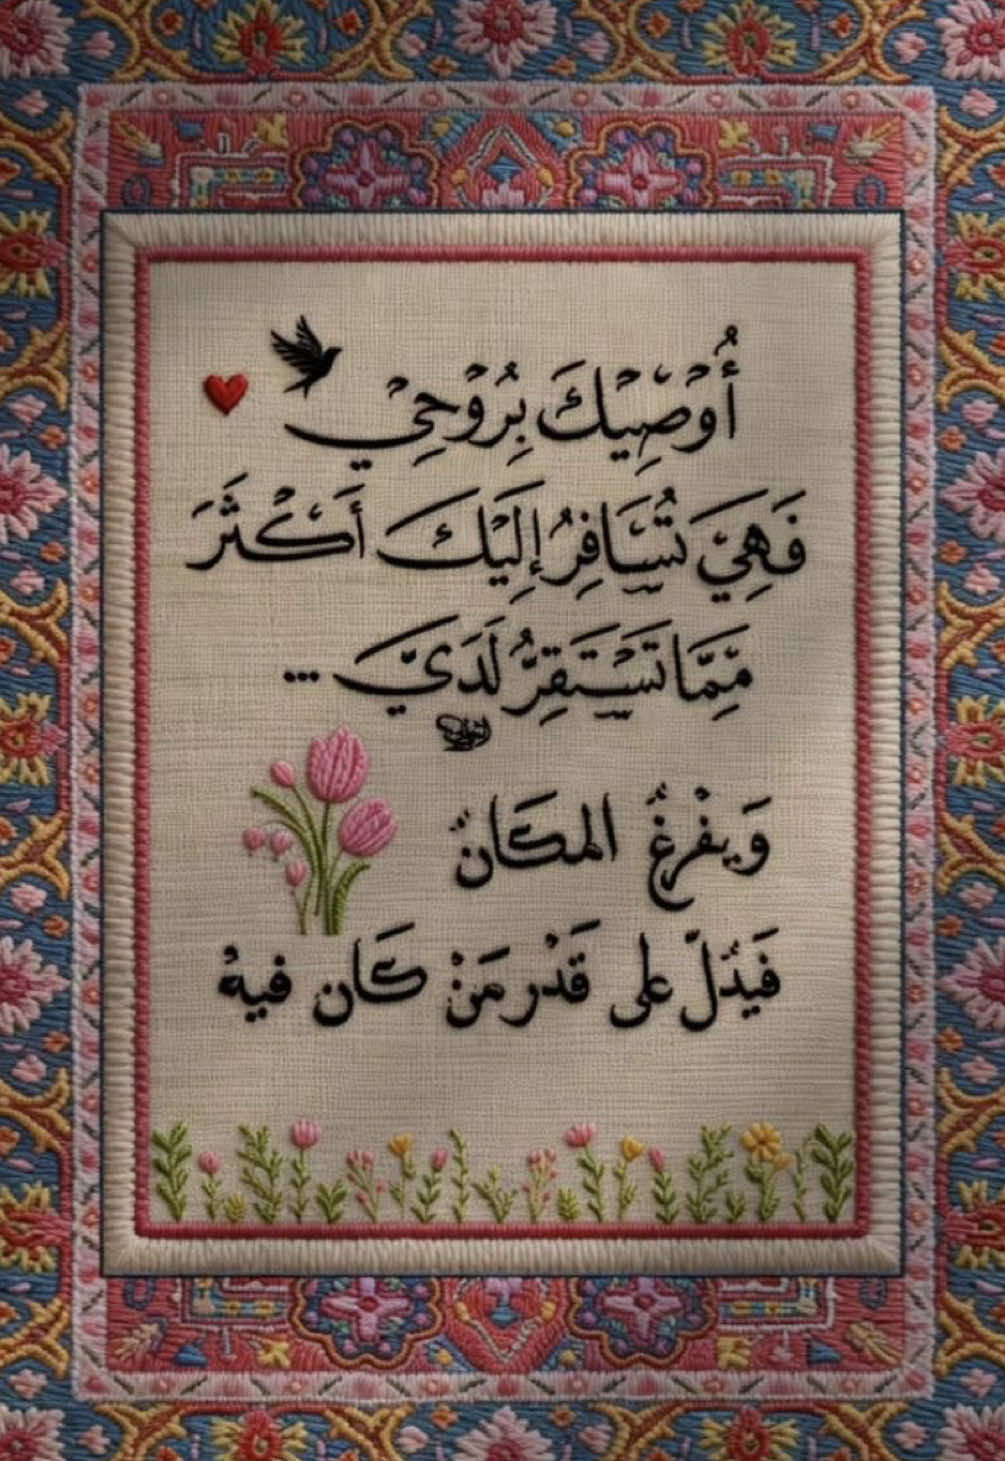 أُوْصِيْكَ بِرُوْحِيْ
فَهِيَ تُسَافِرُ إِلَيْكَ أَكْثَرَ
مِمَّا تَسْتَقِرُّ لَدَيَّ ...
وَيفْرغُ المكَانُ
فَيَدُلّ على قَدْر مَنْ كَان فيهْ